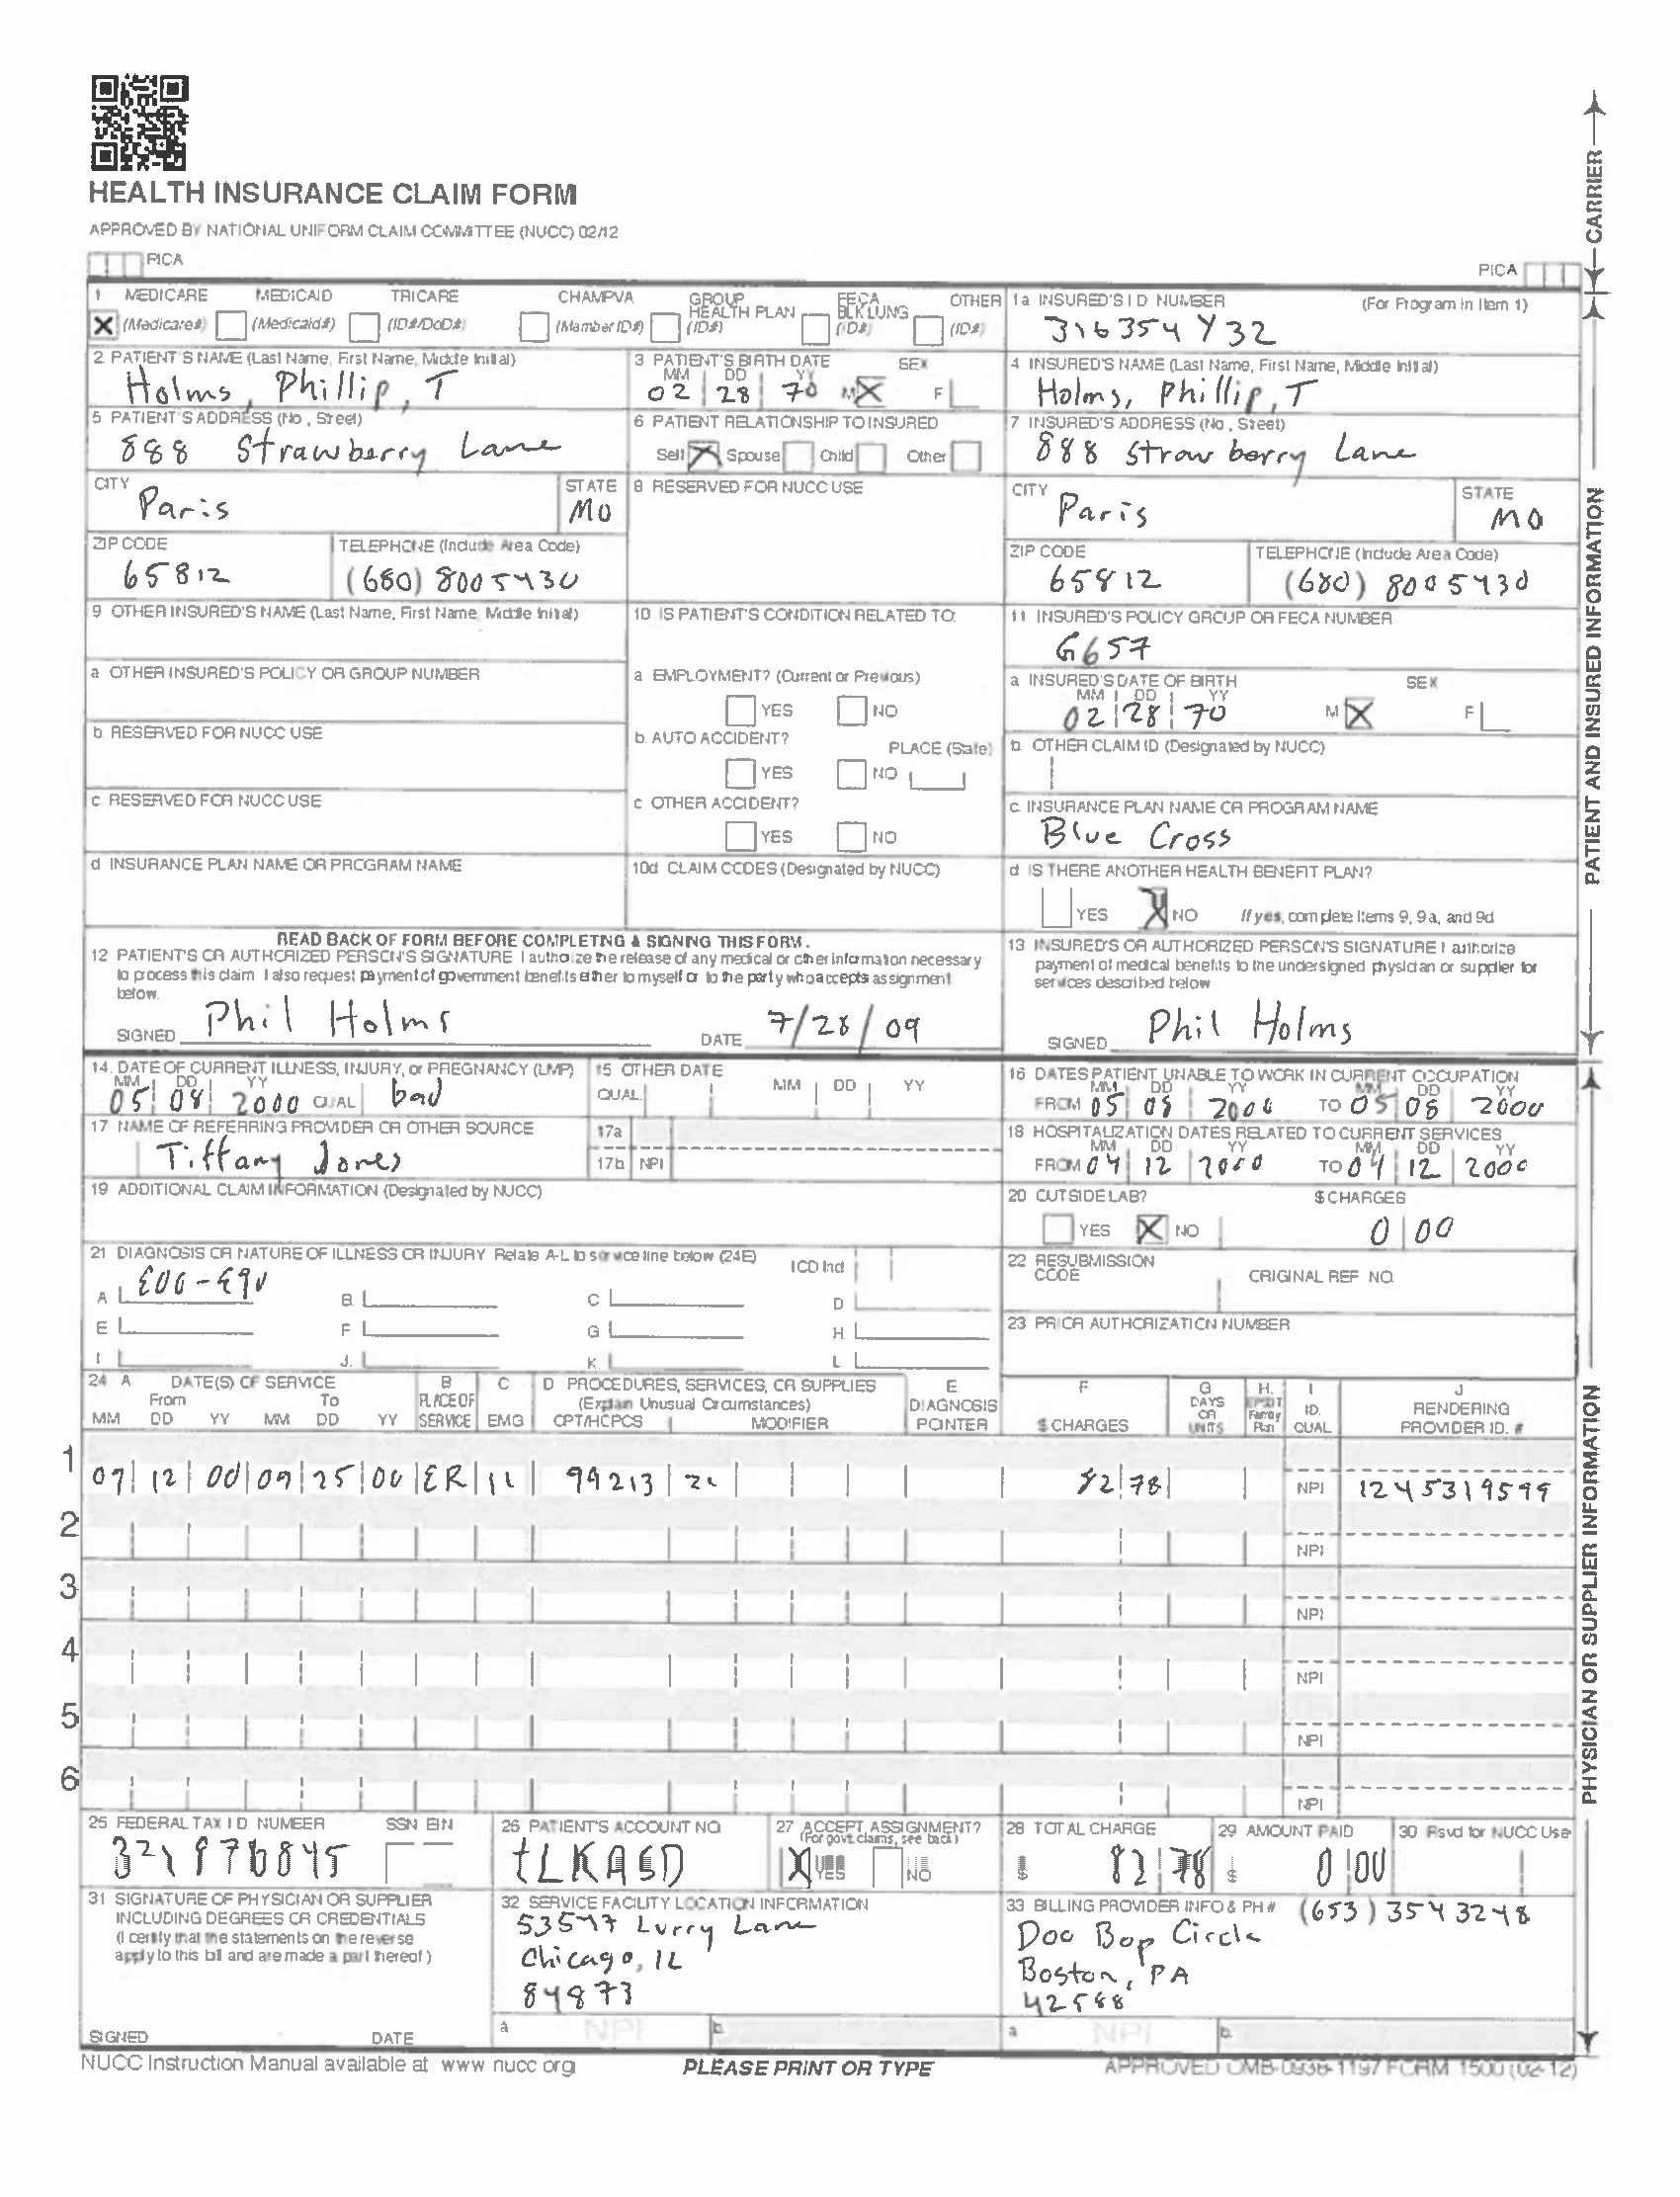 HEALTH INSURANCE CLAIM FORM
APPROVED BY NATIONAL UNIFORM CLAIM COMMITTEE (NUCC) 02/12
PICA
PICA
CARRIER
1 MEDICARE MEDICAID TRICARE CHAMPVA GROUP HEALTH PLAN FECA BLK LUNG OTHER
X (Medicare#) (Medicaid#) (ID#/DoD#) (Member ID#) (ID#) (ID#) (ID#)
1a INSURED'S I D NUMBER (For Program in Item 1)
316354Y32
2 PATIENT'S NAME (Last Name, First Name, Middle Initial)
Holms, Phillip, T
3 PATIENT'S BIRTH DATE SEX
MM DD YY
02 28 70 M X F
4 INSURED'S NAME (Last Name, First Name, Middle Initial)
Holms, Phillip, T
5 PATIENT'S ADDRESS (No, Street)
888 Strawberry Lane
6 PATIENT RELATIONSHIP TO INSURED
Self X Spouse Child Other
7 INSURED'S ADDRESS (No, Street)
888 Strawberry Lane
CITY STATE
Paris MO
8 RESERVED FOR NUCC USE
CITY STATE
Paris MO
ZIP CODE TELEPHONE (Include Area Code)
65812 (680) 8005430
ZIP CODE TELEPHONE (Include Area Code)
65812 (680) 8005430
9 OTHER INSURED'S NAME (Last Name, First Name, Middle Initial)
10 IS PATIENT'S CONDITION RELATED TO:
11 INSURED'S POLICY GROUP OR FECA NUMBER
G657
a OTHER INSURED'S POLICY OR GROUP NUMBER
a EMPLOYMENT? (Current or Previous)
YES NO
a INSURED'S DATE OF BIRTH SEX
MM DD YY
02 28 70 M X F
b. RESERVED FOR NUCC USE
b. AUTO ACCIDENT? PLACE (State)
YES NO
b. OTHER CLAIM ID (Designated by NUCC)
c RESERVED FOR NUCC USE
c OTHER ACCIDENT?
YES NO
c. INSURANCE PLAN NAME OR PROGRAM NAME
Blue Cross
d INSURANCE PLAN NAME OR PROGRAM NAME
10d CLAIM CODES (Designated by NUCC)
d IS THERE ANOTHER HEALTH BENEFIT PLAN?
YES X NO If yes, complete Items 9, 9a, and 9d
PATIENT AND INSURED INFORMATION
READ BACK OF FORM BEFORE COMPLETING & SIGNING THIS FORM.
12 PATIENT'S OR AUTHORIZED PERSON'S SIGNATURE I authorize the release of any medical or other information necessary
to process this claim I also request payment of government benefits either to myself or to the party who accepts assignment
below.
SIGNED Phil Holms DATE 7/28/09
13 INSURED'S OR AUTHORIZED PERSON'S SIGNATURE I authorize
payment of medical benefits to the undersigned physician or supplier for
services described below
SIGNED Phil Holms
14. DATE OF CURRENT ILLNESS, INJURY, or PREGNANCY (LMP)
MM DD YY
05 08 2000 QUAL bad
15 OTHER DATE
QUAL MM DD YY
16 DATES PATIENT UNABLE TO WORK IN CURRENT OCCUPATION
MM DD YY MM DD YY
FROM 05 08 2000 TO 05 08 2000
17 NAME OF REFERRING PROVIDER OR OTHER SOURCE
Tiffany Jones
17a
17b NPI
18 HOSPITALIZATION DATES RELATED TO CURRENT SERVICES
MM DD YY MM DD YY
FROM 04 12 2000 TO 04 12 2000
19 ADDITIONAL CLAIM INFORMATION (Designated by NUCC)
20 OUTSIDE LAB? $ CHARGES
YES X NO 0 00
21 DIAGNOSIS OR NATURE OF ILLNESS OR INJURY Relate A-L to service line below (24E) ICD Ind
A E00-E90 B. C D
E F G H.
I J. K. L
22 RESUBMISSION CODE ORIGINAL REF NO.
23 PRIOR AUTHORIZATION NUMBER
24 A DATE(S) OF SERVICE B C D PROCEDURES, SERVICES, OR SUPPLIES E. F G H. I J
From To PLACE OF (Explain Unusual Circumstances) DIAGNOSIS DAYS OR UNITS EPSDT Family Plan ID. RENDERING
MM DD YY MM DD YY SERVICE EMG CPT/HCPCS MODIFIER POINTER $ CHARGES QUAL PROVIDER ID. #
1 12 00 25 00 ER 11 99213 82 78 NPI 1245319599
2 NPI
3 NPI
4 NPI
5 NPI
6 NPI
PHYSICIAN OR SUPPLIER INFORMATION
25 FEDERAL TAX I D NUMBER SSN EIN
321976845
26 PATIENT'S ACCOUNT NO.
tLKASD
27 ACCEPT ASSIGNMENT?
(For govt. claims, see back)
X YES NO
28 TOTAL CHARGE
$ 82 78
29 AMOUNT PAID
$ 0 00
30 Rsvd for NUCC Use
31 SIGNATURE OF PHYSICIAN OR SUPPLIER
INCLUDING DEGREES OR CREDENTIALS
(I certify that the statements on the reverse
apply to this bill and are made a part thereof)
SIGNED DATE
32 SERVICE FACILITY LOCATION INFORMATION
Lurry Lane
Chicago, IL
84873
a NPI b.
33 BILLING PROVIDER INFO & PH # (653) 3543248
Doo Bop Circle
Boston, PA
a NPI b.
NUCC Instruction Manual available at www nucc org
PLEASE PRINT OR TYPE
APPROVED OMB-0938-1197 FORM 1500 (02-12)